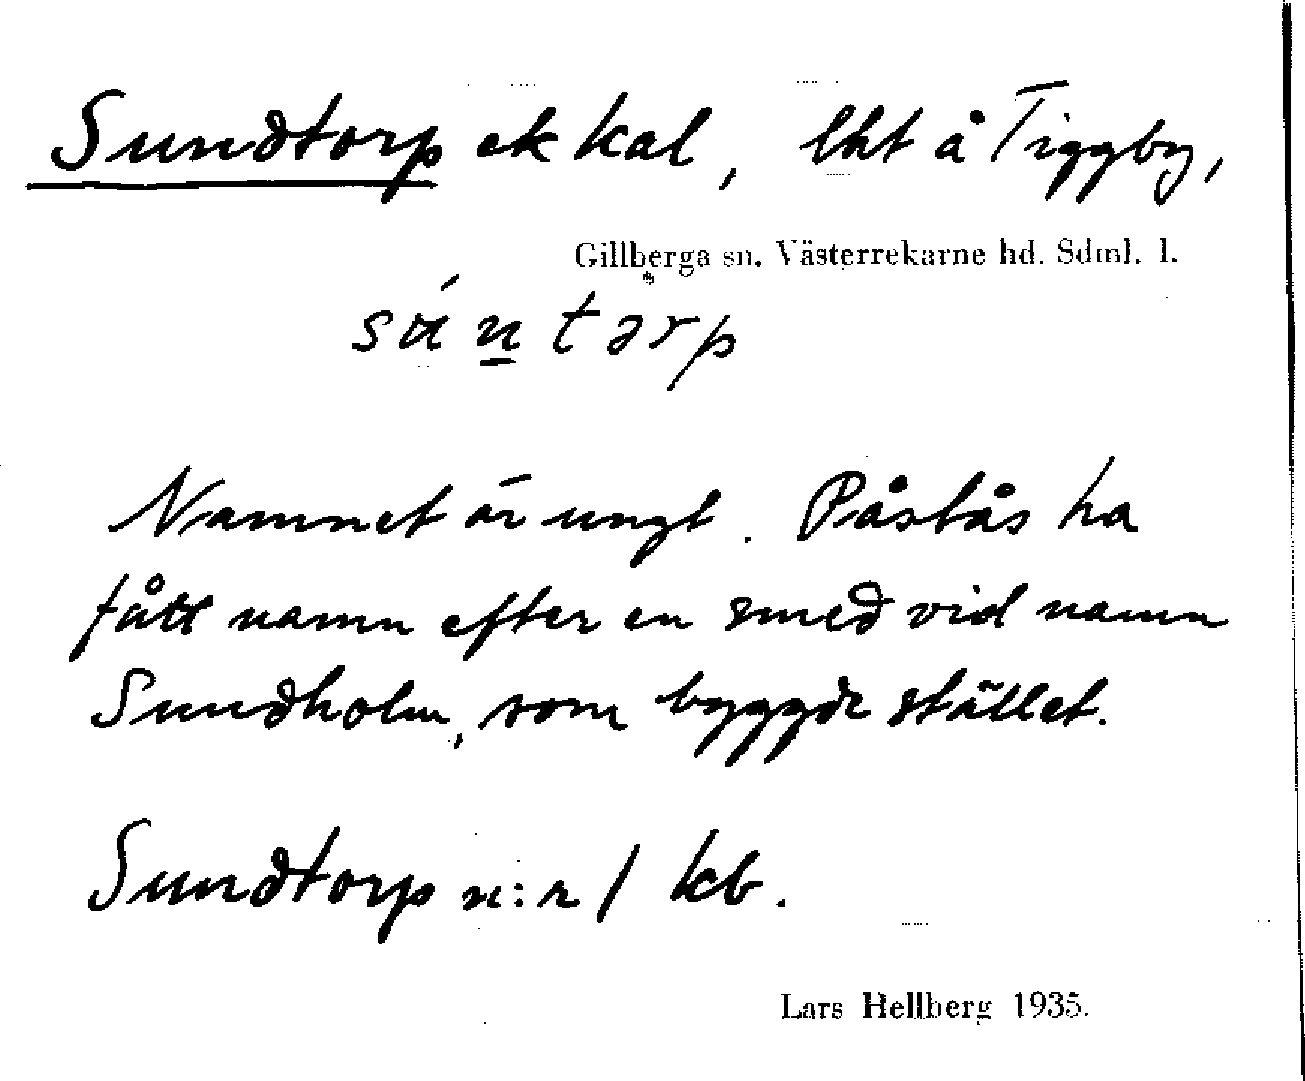 Sundtorp ek kal, lht å Tiggby,
Gillberga sn. Västerrekarne hd. Sdml. l.
sántərp
Namnet är ungt. Påstås ha
fått namn efter en smed vid namn
Sundholm, som byggde stället.
Sundtorp n:r 1 kb.
Lars Hellberg 1935.